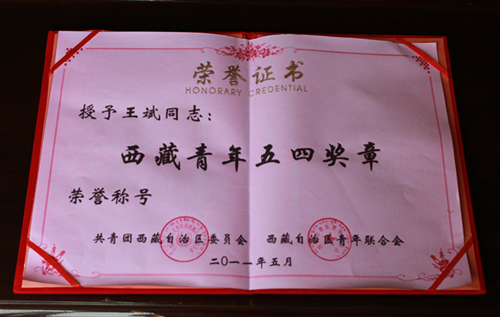 荣誉证书
HONORARY CREDENTIAL
授予王斌同志：
西藏青年五四奖章
荣誉称号
共青团西藏自治区委员会 西藏自治区青年联合会
二〇一一年五月